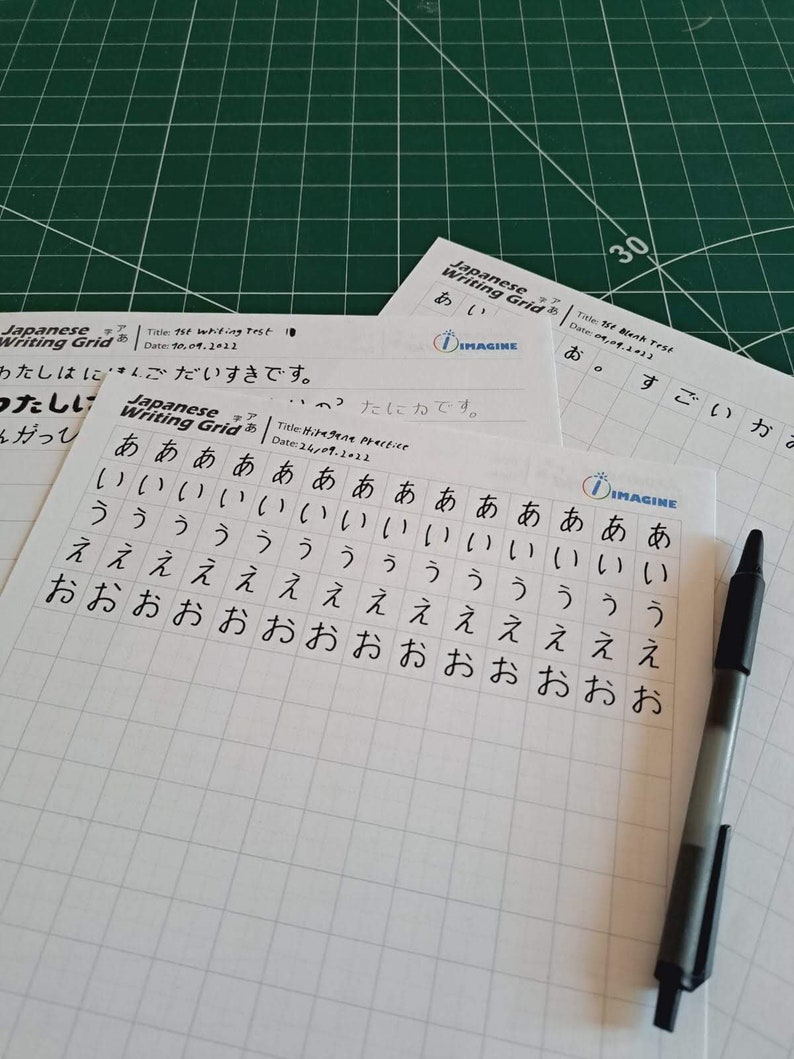 Japanese
Writing Grid
字 ア
あ
Title: 1st Blank Test
Date: 09,09.2022
あ い
お 。 す ご い か
Japanese
Writing Grid
字 ア
あ
Title: 1st Writing Test
Date: 10,09.2022
IMAGINE
わたしはにほんご だいすきです。
わたしに
たにかです。
んがっ
Japanese
Writing Grid
字 ア
あ
Title: Hiragana Practice
Date: 24,09.2022
IMAGINE
あ あ あ あ あ あ あ あ あ あ あ あ あ あ
い い い い い い い い い い い い い い
う う う う う う う う う う う う う う
え え え え え え え え え え え え え え
お お お お お お お お お お お お お お
30